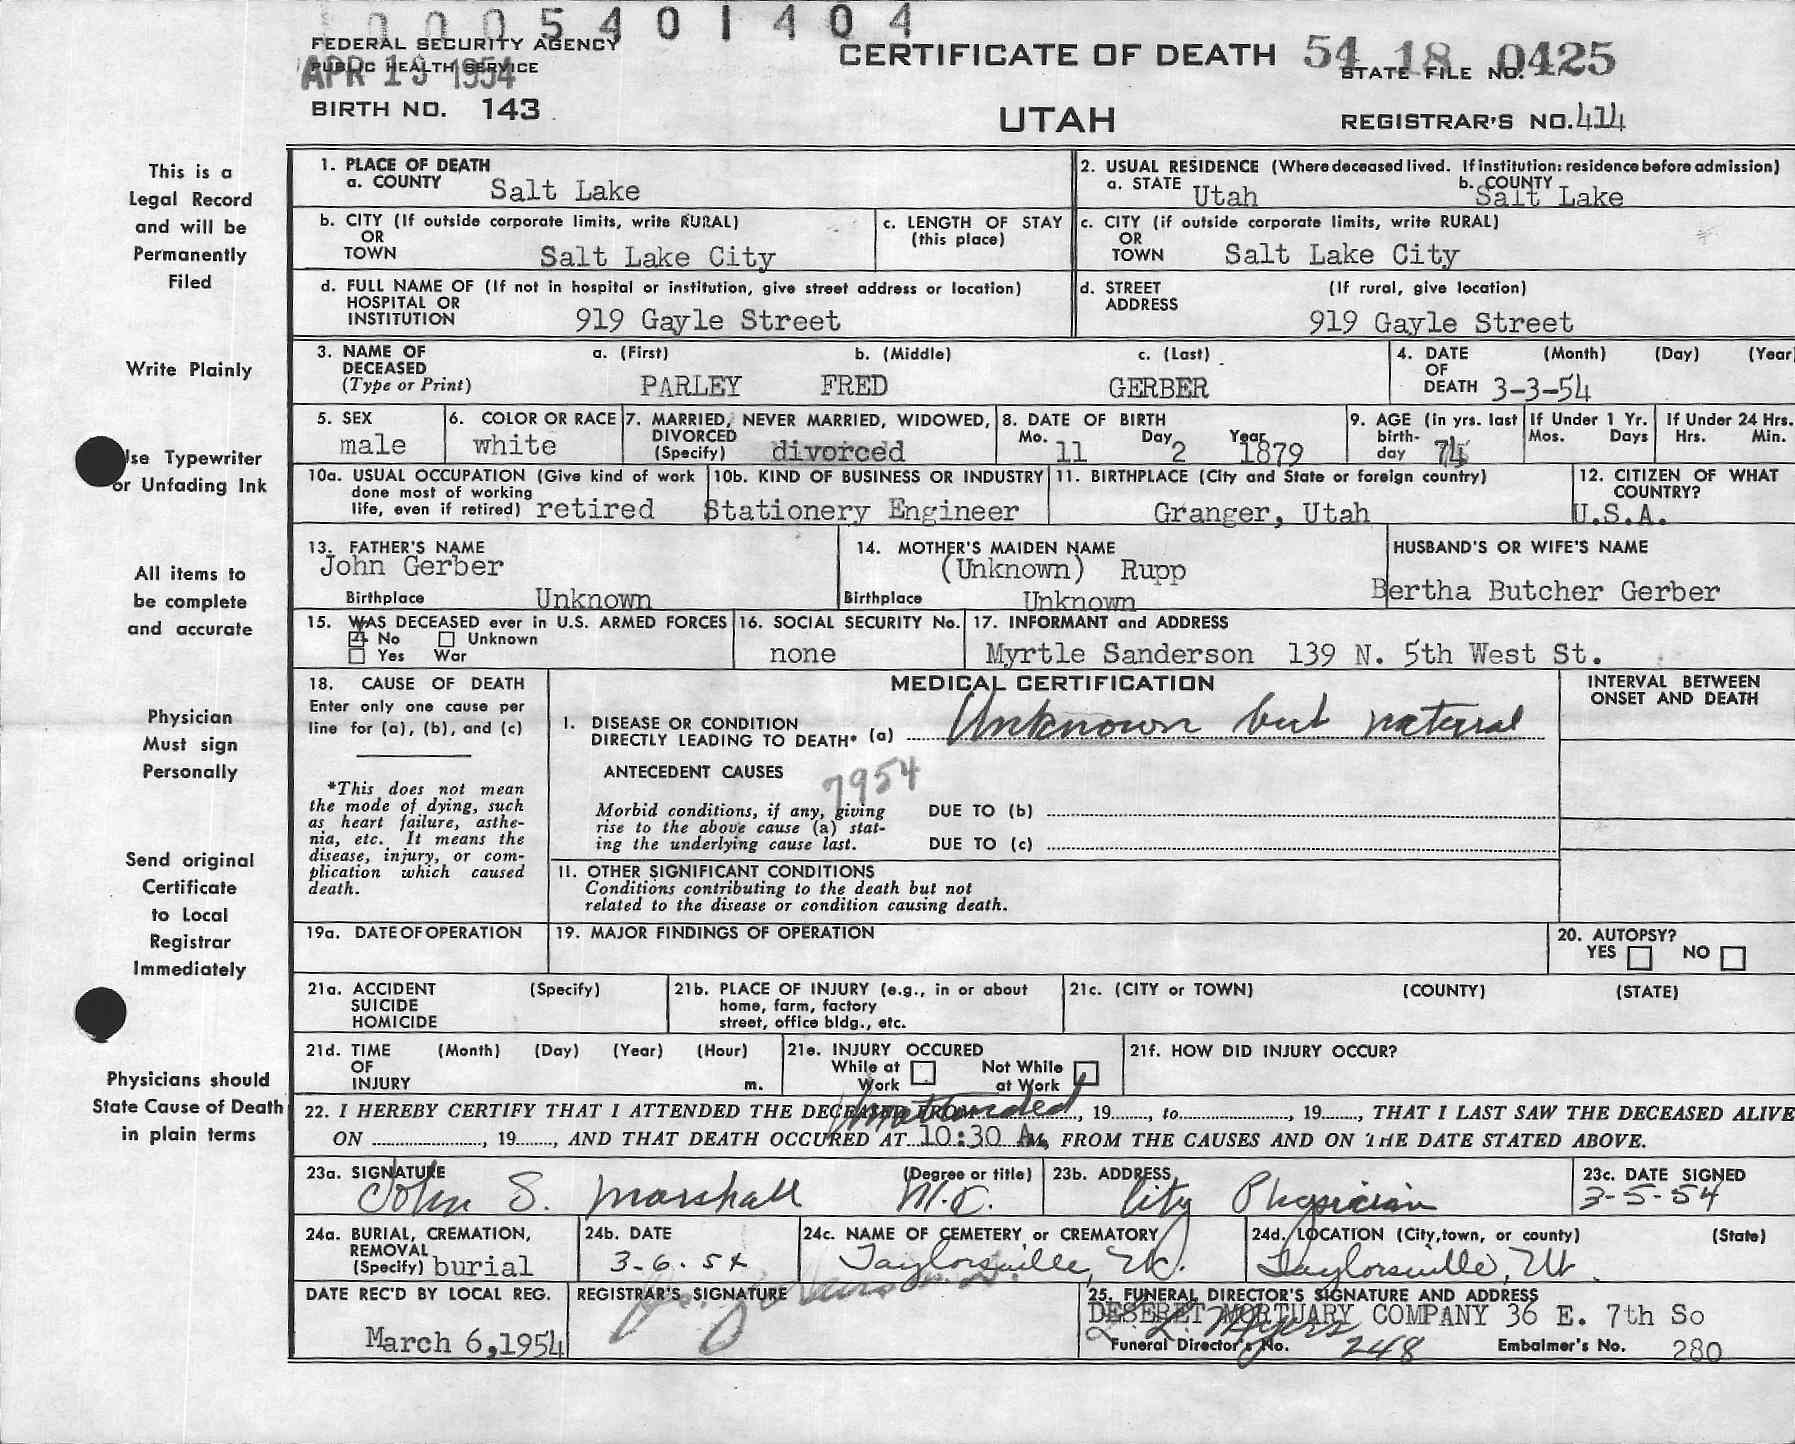 0005401404
FEDERAL SECURITY AGENCY
PUBLIC HEALTH SERVICE
APR 13 1954
BIRTH NO. 143
CERTIFICATE OF DEATH
UTAH
54 18 0425
STATE FILE NO.
REGISTRAR'S NO. 414
This is a
Legal Record
and will be
Permanently
Filed
Write Plainly
Use Typewriter
or Unfading Ink
All items to
be complete
and accurate
Physician
Must sign
Personally
Send original
Certificate
to Local
Registrar
Immediately
Physicians should
State Cause of Death
in plain terms
1. PLACE OF DEATH
a. COUNTY Salt Lake
2. USUAL RESIDENCE (Where deceased lived. If institution: residence before admission)
a. STATE Utah b. COUNTY Salt Lake
b. CITY (If outside corporate limits, write RURAL)
OR
TOWN Salt Lake City
c. LENGTH OF STAY
(this place)
c. CITY (if outside corporate limits, write RURAL)
OR
TOWN Salt Lake City
d. FULL NAME OF (If not in hospital or institution, give street address or location)
HOSPITAL OR
INSTITUTION 919 Gayle Street
d. STREET (If rural, give location)
ADDRESS 919 Gayle Street
3. NAME OF DECEASED
(Type or Print)
a. (First) b. (Middle) c. (Last)
PARLEY FRED GERBER
4. DATE (Month) (Day) (Year)
OF
DEATH 3-3-54
5. SEX
male
6. COLOR OR RACE
white
7. MARRIED, NEVER MARRIED, WIDOWED,
DIVORCED
(Specify) divorced
8. DATE OF BIRTH
Mo. 11 Day 2 Year 1879
9. AGE (in yrs. last
birth-
day 74
If Under 1 Yr.
Mos. Days
If Under 24 Hrs.
Hrs. Min.
10a. USUAL OCCUPATION (Give kind of work
done most of working
life, even if retired) retired
10b. KIND OF BUSINESS OR INDUSTRY
Stationery Engineer
11. BIRTHPLACE (City and State or foreign country)
Granger, Utah
12. CITIZEN OF WHAT
COUNTRY?
U.S.A.
13. FATHER'S NAME
John Gerber
Birthplace Unknown
14. MOTHER'S MAIDEN NAME
(Unknown) Rupp
Birthplace Unknown
HUSBAND'S OR WIFE'S NAME
Bertha Butcher Gerber
15. WAS DECEASED ever in U.S. ARMED FORCES
No Unknown
Yes War
16. SOCIAL SECURITY No.
none
17. INFORMANT and ADDRESS
Myrtle Sanderson 139 N. 5th West St.
18. CAUSE OF DEATH
Enter only one cause per
line for (a), (b), and (c)
*This does not mean
the mode of dying, such
as heart failure, asthe-
nia, etc. It means the
disease, injury, or com-
plication which caused
death.
MEDICAL CERTIFICATION
INTERVAL BETWEEN
ONSET AND DEATH
I. DISEASE OR CONDITION
DIRECTLY LEADING TO DEATH* (a) Unknown but natural
ANTECEDENT CAUSES
7954
Morbid conditions, if any, giving
rise to the above cause (a) stat-
ing the underlying cause last.
DUE TO (b)
DUE TO (c)
II. OTHER SIGNIFICANT CONDITIONS
Conditions contributing to the death but not
related to the disease or condition causing death.
19a. DATE OF OPERATION
19. MAJOR FINDINGS OF OPERATION
20. AUTOPSY?
YES NO
21a. ACCIDENT (Specify)
SUICIDE
HOMICIDE
21b. PLACE OF INJURY (e.g., in or about
home, farm, factory
street, office bldg., etc.
21c. (CITY or TOWN) (COUNTY) (STATE)
21d. TIME (Month) (Day) (Year) (Hour)
OF
INJURY m.
21e. INJURY OCCURED
While at Work Not While at Work
21f. HOW DID INJURY OCCUR?
22. I HEREBY CERTIFY THAT I ATTENDED THE DECEASED FROM Unattended, 19......, to............, 19......, THAT I LAST SAW THE DECEASED ALIVE
ON ............, 19......, AND THAT DEATH OCCURED AT 10:30 A M, FROM THE CAUSES AND ON THE DATE STATED ABOVE.
23a. SIGNATURE (Degree or title)
John S. Marshall M.D.
23b. ADDRESS
City Physician
23c. DATE SIGNED
3-5-54
24a. BURIAL, CREMATION,
REMOVAL
(Specify) burial
24b. DATE
3-6-54
24c. NAME OF CEMETERY or CREMATORY
Taylorsville, Ut.
24d. LOCATION (City, town, or county) (State)
Taylorsville, Ut.
DATE REC'D BY LOCAL REG.
March 6, 1954
REGISTRAR'S SIGNATURE
25. FUNERAL DIRECTOR'S SIGNATURE AND ADDRESS
DESERET MORTUARY COMPANY 36 E. 7th So
Myers
Funeral Director's No. 248 Embalmer's No. 280